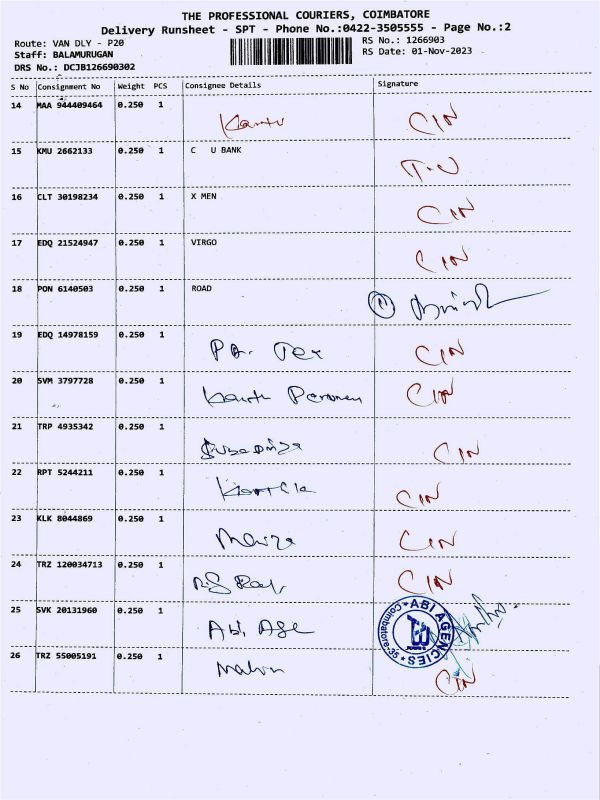 THE PROFESSIONAL COURIERS, COIMBATORE
Delivery Runsheet - SPT - Phone No.:0422-3505555 - Page No.:2
Route: VAN DLY - P20
RS No.: 1266903
Staff: BALAMURUGAN
RS Date: 01-Nov-2023
DRS No.: DCJB126690302
S No Consignment No Weight PCS Consignee Details Signature
14 MAA 944409464 0.250 1 CIN
15 KMU 2662133 0.250 1 C U BANK
16 CLT 30198234 0.250 1 X MEN CIN
17 EDQ 21524947 0.250 1 VIRGO CIN
18 PON 6140503 0.250 1 ROAD
19 EDQ 14978159 0.250 1 Tex CIN
20 SVM 3797728 0.250 1 CIN
21 TRP 4935342 0.250 1 CIN
22 RPT 5244211 0.250 1 CIN
23 KLK 8044869 0.250 1 CIN
24 TRZ 120034713 0.250 1 CIN
25 SVK 20131960 0.250 1 Abi Age ABI AGENCIES Coimbatore-35
26 TRZ 55005191 0.250 1 CIN